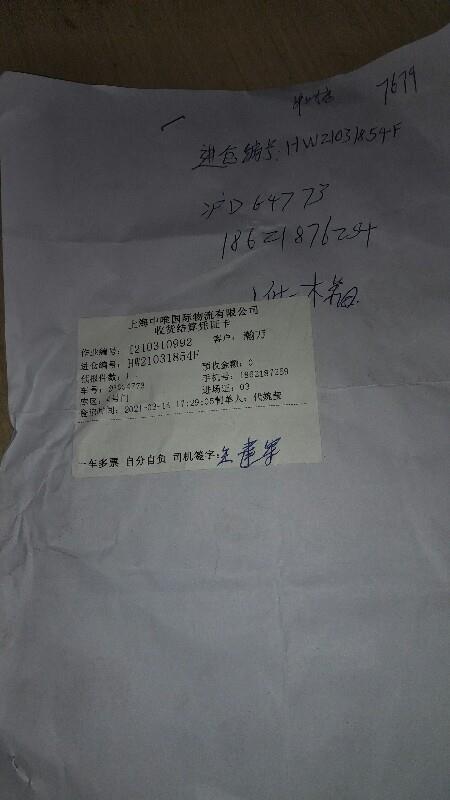 7679
进仓编号: HW21031854-F
沪D64773
1件-木箱
上海中唯国际物流有限公司
收货结算凭证卡
作业编号: I210310992 客户: 瀚万
进仓编号: HW21031854F
预报件数: 1 预收金额: 0
车号: 手机号: 1862187259
库区: 4号门 进场证: 03
登记时间: 2021-03-14 17:29:05 制单人:
一车多票 自分自负 司机签字: